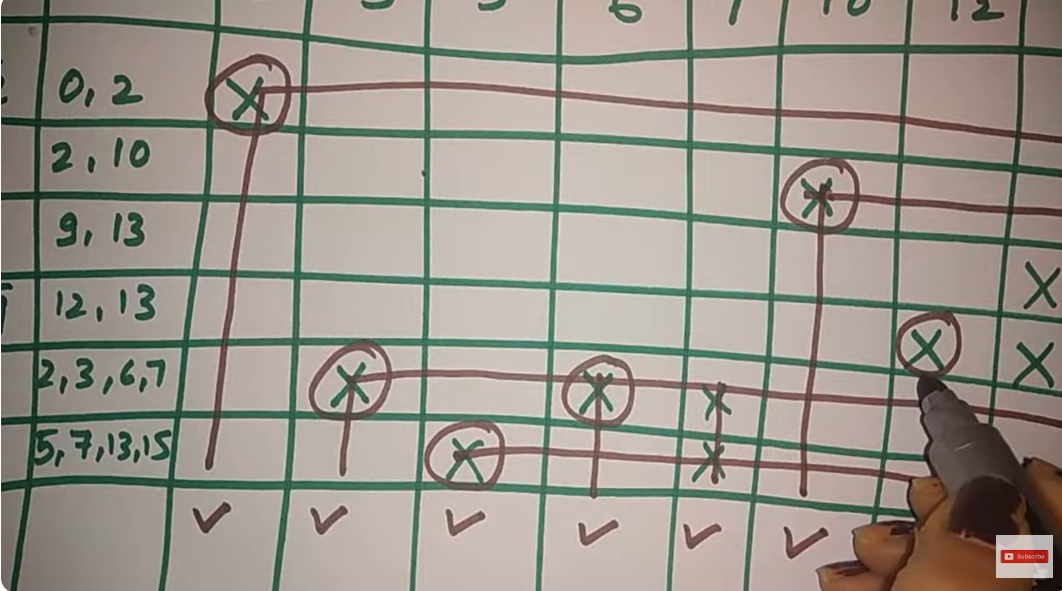 3 5 6 7 10 12
0, 2 X
2, 10 X
9, 13 X
12, 13 X X
2, 3, 6, 7 X X X
5, 7, 13, 15 X X
✓ ✓ ✓ ✓ ✓ ✓
Subscribe